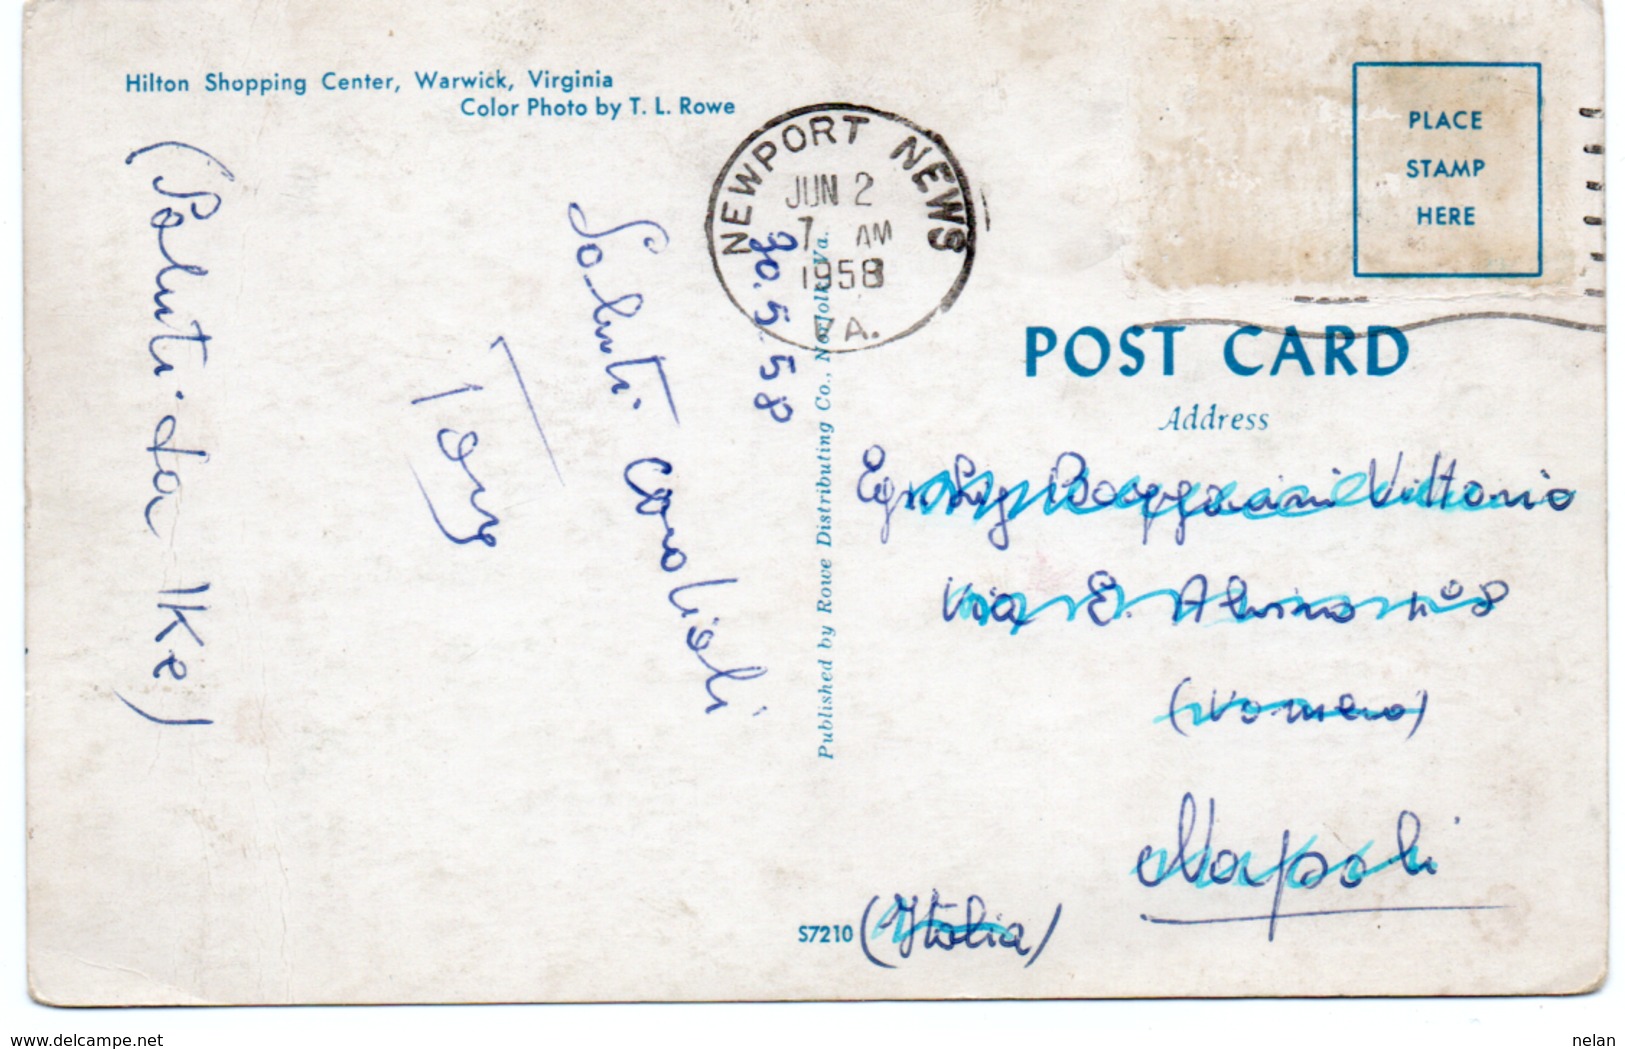 Hilton Shopping Center, Warwick, Virginia
Color Photo by T. L. Rowe
NEWPORT NEWS
JUN 2
7 AM
1958
VA.
PLACE
STAMP
HERE
POST CARD
Address
30.5.58
Saluti cordiali
Tony
(Saluti da Ike)
Published by Rowe Distributing Co., Norfolk, Va.
Egr. Sig. Vittorio
Via E. Alvino n° 8
(Vomero)
Napoli
(Italia)
S7210
www.delcampe.net
nelan